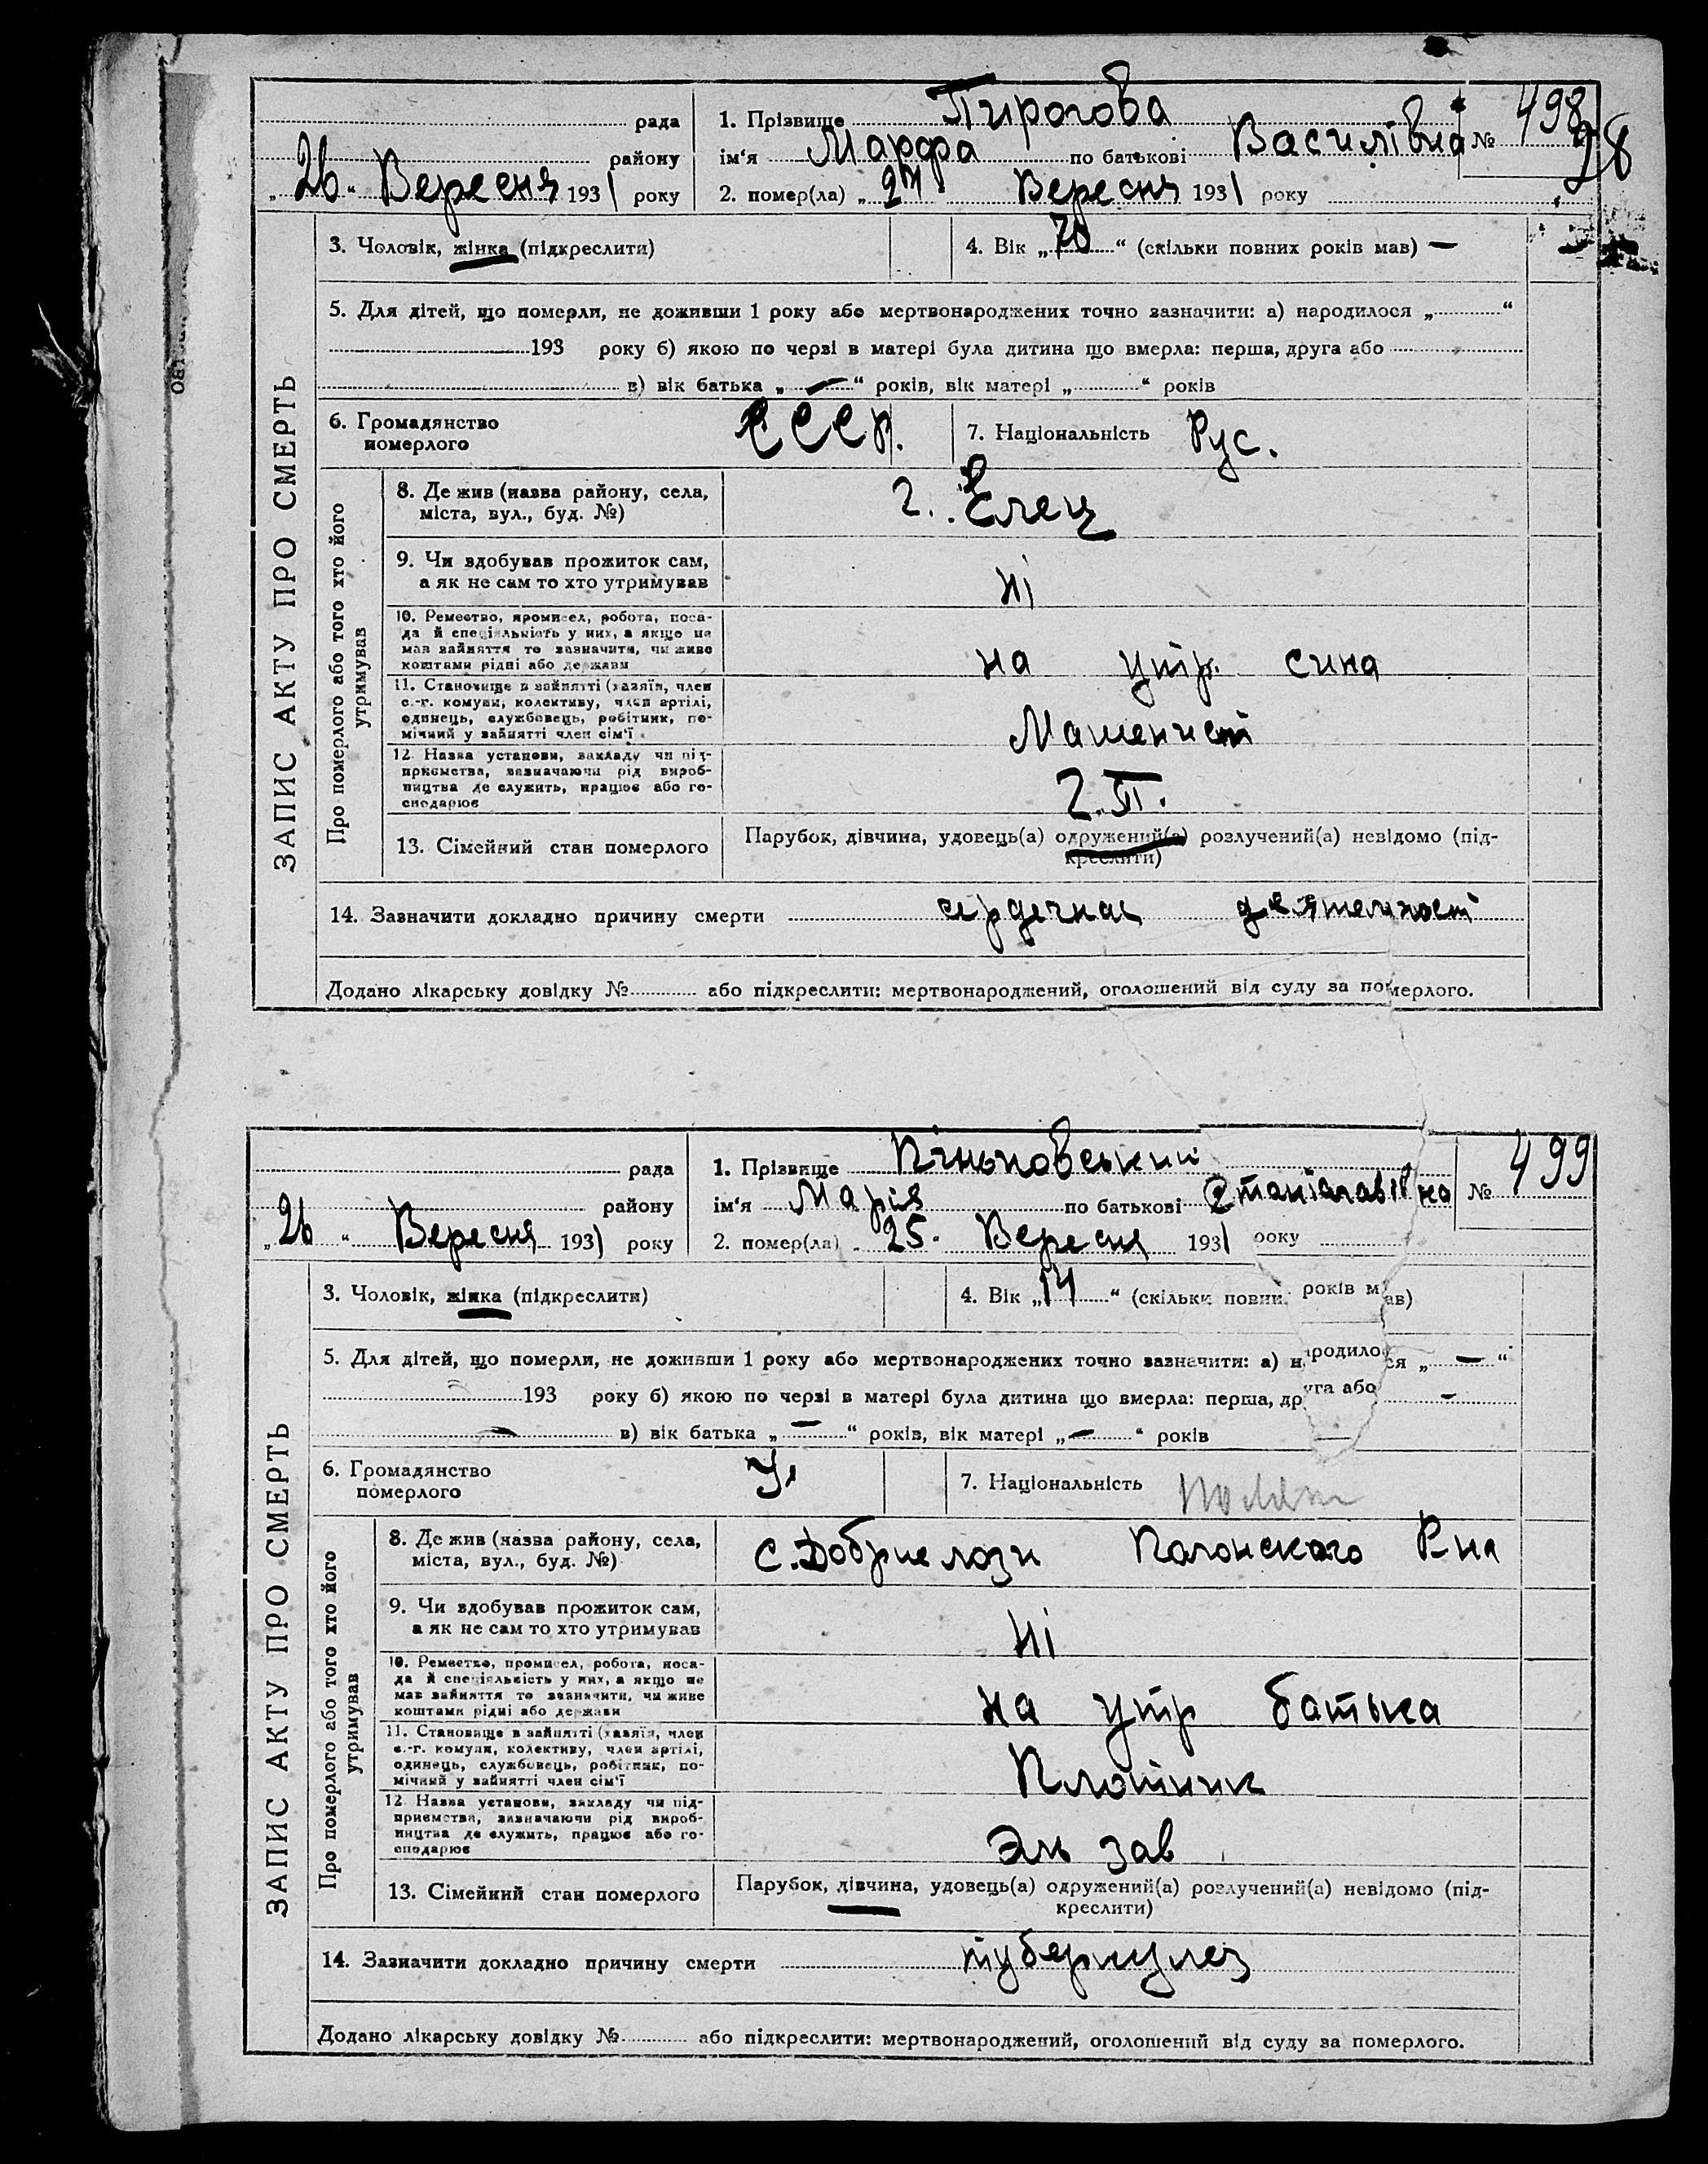 рада 1. Прізвище Пирогова 498
району ім'я Марфа по батькові Василівна № 28
„26“ Вересня 1931 року 2. помер(ла) „24 Вересня 1931 року
3. Чоловік, жінка (підкреслити) 4. Вік „70“ (скільки повних років мав) —
5. Для дітей, що померли, не доживши 1 року або мертвонароджених точно зазначити: а) народилося „ “
193 року б) якою по черзі в матері була дитина що вмерла: перша, друга або
в) вік батька „ — “ років, вік матері „ “ років
6. Громадянство померлого СССР. 7. Національність Рус.
ЗАПИС АКТУ ПРО СМЕРТЬ
Про померлого або того хто його утримував
8. Де жив (назва району, села,
міста, вул., буд. №) г. Елец
9. Чи здобував прожиток сам,
а як не сам то хто утримував ні
10. Ремество, промисел, робота, поса-
да й спеціяльність у них, а якщо не
мав зайняття то зазначити, чи живе
коштами рідні або держави на утр. сина
11. Становище в зайнятті (хазяїн, член
с.-г. комуни, колективу, член артілі,
одинець, службовець, робітник, по-
мічний у зайнятті член сім'ї Машенист
12. Назва установи, закладу чи під-
приємства, зазначаючи рід вироб-
ництва де служить, працює або го-
сподарює
13. Сімейний стан померлого Парубок, дівчина, удовець(а) одружений(а) розлучений(а) невідомо (під-
креслити)
14. Зазначити докладно причину смерти сердечная деятельност
Додано лікарську довідку № або підкреслити: мертвонароджений, оголошений від суду за померлого.
рада 1. Прізвище Піньковський 499
району ім'я Марія по батькові Станіславівна №
„26“ Вересня 1931 року 2. помер(ла) „25. Вересня 1931 року
3. Чоловік, жінка (підкреслити) 4. Вік „14“ (скільки повних років мав)
5. Для дітей, що померли, не доживши 1 року або мертвонароджених точно зазначити: а) народилося „ — “
193 року б) якою по черзі в матері була дитина що вмерла: перша, друга або —
— в) вік батька „ — “ років, вік матері „ — “ років
6. Громадянство померлого У. 7. Національність
ЗАПИС АКТУ ПРО СМЕРТЬ
Про померлого або того хто його утримував
8. Де жив (назва району, села,
міста, вул., буд. №) с. Добрие лози Полонского Рна
9. Чи здобував прожиток сам,
а як не сам то хто утримував ні
10. Ремество, промисел, робота, поса-
да й спеціяльність у них, а якщо не
мав зайняття то зазначити, чи живе
коштами рідні або держави на утр батька
11. Становище в зайнятті (хазяїн, член
с.-г. комуни, колективу, член артілі,
одинець, службовець, робітник, по-
мічний у зайнятті член сім'ї Плотник
12. Назва установи, закладу чи під-
приємства, зазначаючи рід вироб-
ництва де служить, працює або го-
сподарює зав
13. Сімейний стан померлого Парубок, дівчина, удовець(а) одружений(а) розлучений(а) невідомо (під-
креслити)
14. Зазначити докладно причину смерти туберкулез
Додано лікарську довідку № або підкреслити: мертвонароджений, оголошений від суду за померлого.